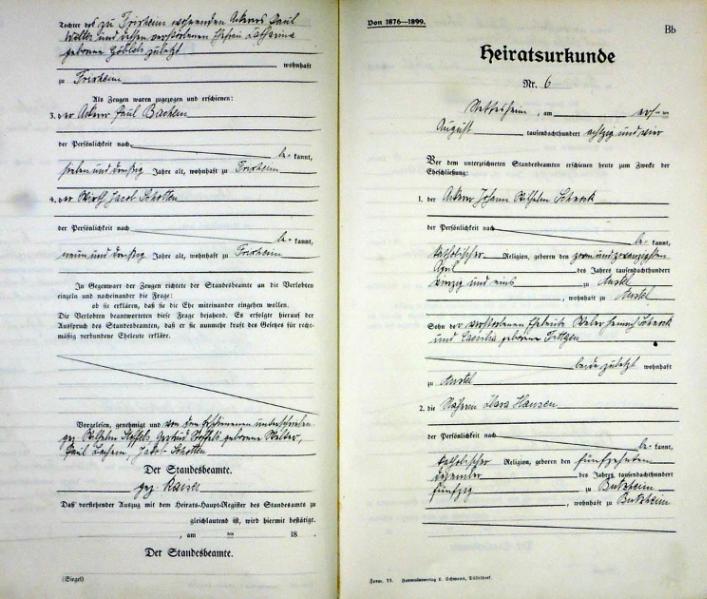 Tochter des zu Frixheim wohnenden Ackerers Paul
Wolter und dessen verstorbenen Ehefrau Katharina
geborene Göblich zuletzt
wohnhaft
zu Frixheim
Als Zeugen waren zugezogen und erschienen:
3. der Ackerer Paul Bachem
der Persönlichkeit nach
be- kannt,
sieben und dreißig Jahre alt, wohnhaft zu Frixheim
4. der Wirth Jacob Schotten
der Persönlichkeit nach
be- kannt,
neun und dreißig Jahre alt, wohnhaft zu Frixheim
In Gegenwart der Zeugen richtete der Standesbeamte an die Verlobten
einzeln und nacheinander die Frage:
ob sie erklären, daß sie die Ehe miteinander eingehen wollen.
Die Verlobten beantworteten diese Frage bejahend. Es erfolgte hierauf der
Ausspruch des Standesbeamten, daß er sie nunmehr kraft des Gesetzes für recht-
mäßig verbundene Eheleute erkläre.
Vorgelesen, genehmigt und von den Erschienenen unterschrieben
gez. Wilhelm Gertrud geborene Wolter,
Paul Bachem, Jacob Schotten
Der Standesbeamte.
gez. Kaiser
Daß vorstehender Auszug mit dem Heirats-Haupt-Register des Standesamts zu
gleichlautend ist, wird hiermit bestätigt.
, am ten 18 .
Der Standesbeamte.
(Siegel)
Von 1876—1899.
Bb
Heiratsurkunde
Nr. 6
Nettesheim, am
August tausendachthundert achtzig und vier
Vor dem unterzeichneten Standesbeamten erschienen heute zum Zwecke der
Eheschließung:
1. der Ackerer Johann Wilhelm
der Persönlichkeit nach
be- kannt,
katholischer Religion, geboren den zwei und zwanzigsten
April des Jahres tausendachthundert
vierzig und eins zu Anstel
, wohnhaft zu Anstel
Sohn der verstorbenen Eheleute Heinrich
und Caecilia geborene
beide zuletzt wohnhaft
zu Anstel
2. die Clara Hansen
der Persönlichkeit nach
be- kannt,
katholischer Religion, geboren den fünfzehnten
Dezember des Jahres tausendachthundert
fünfzig zu Butzheim
, wohnhaft zu Butzheim